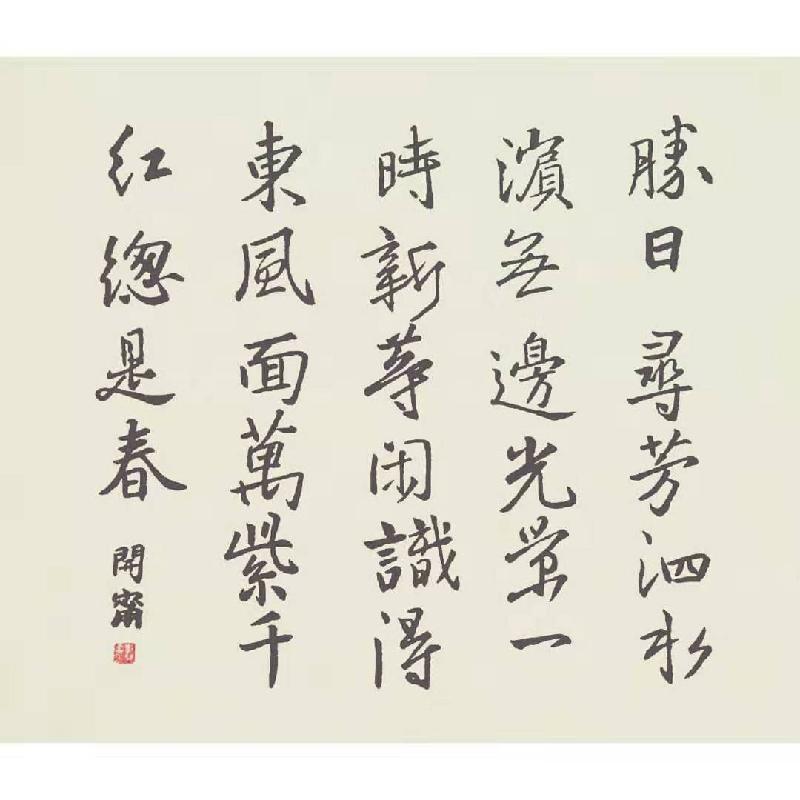 勝日尋芳泗水
濵無邊光景一
時新等闲識得
東風面萬紫千
红總是春
開甯